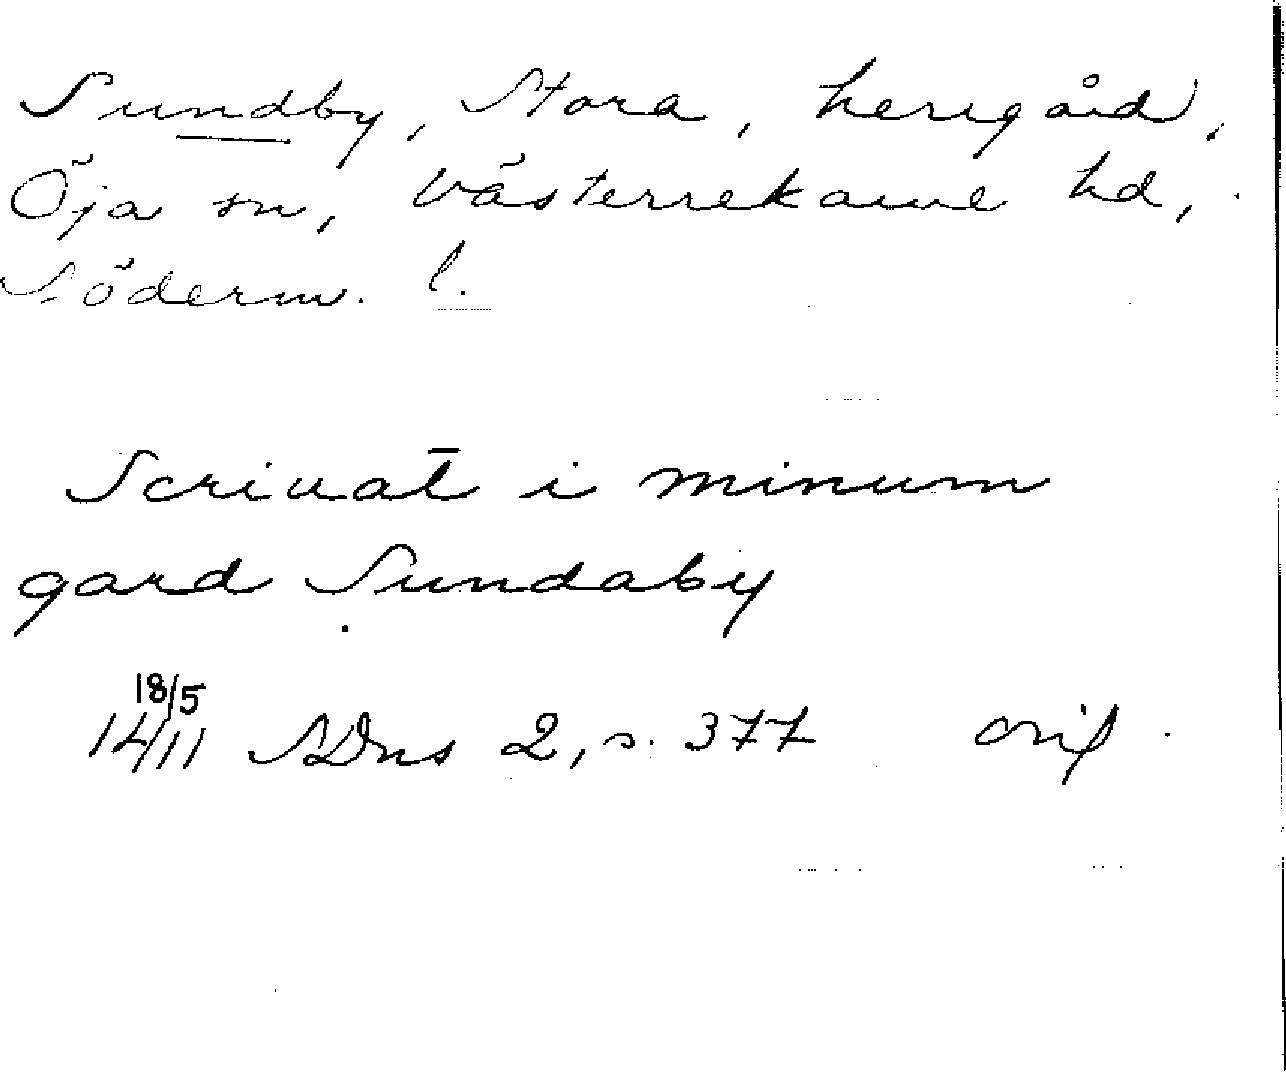 Sundby, Stora, herrgård,
Öja sn, Västerrekarne hd,
Söderm. l.
Scriuat̄ i minum
gard Sundaby
18/5
14/11 SDns 2, s. 377 orig.